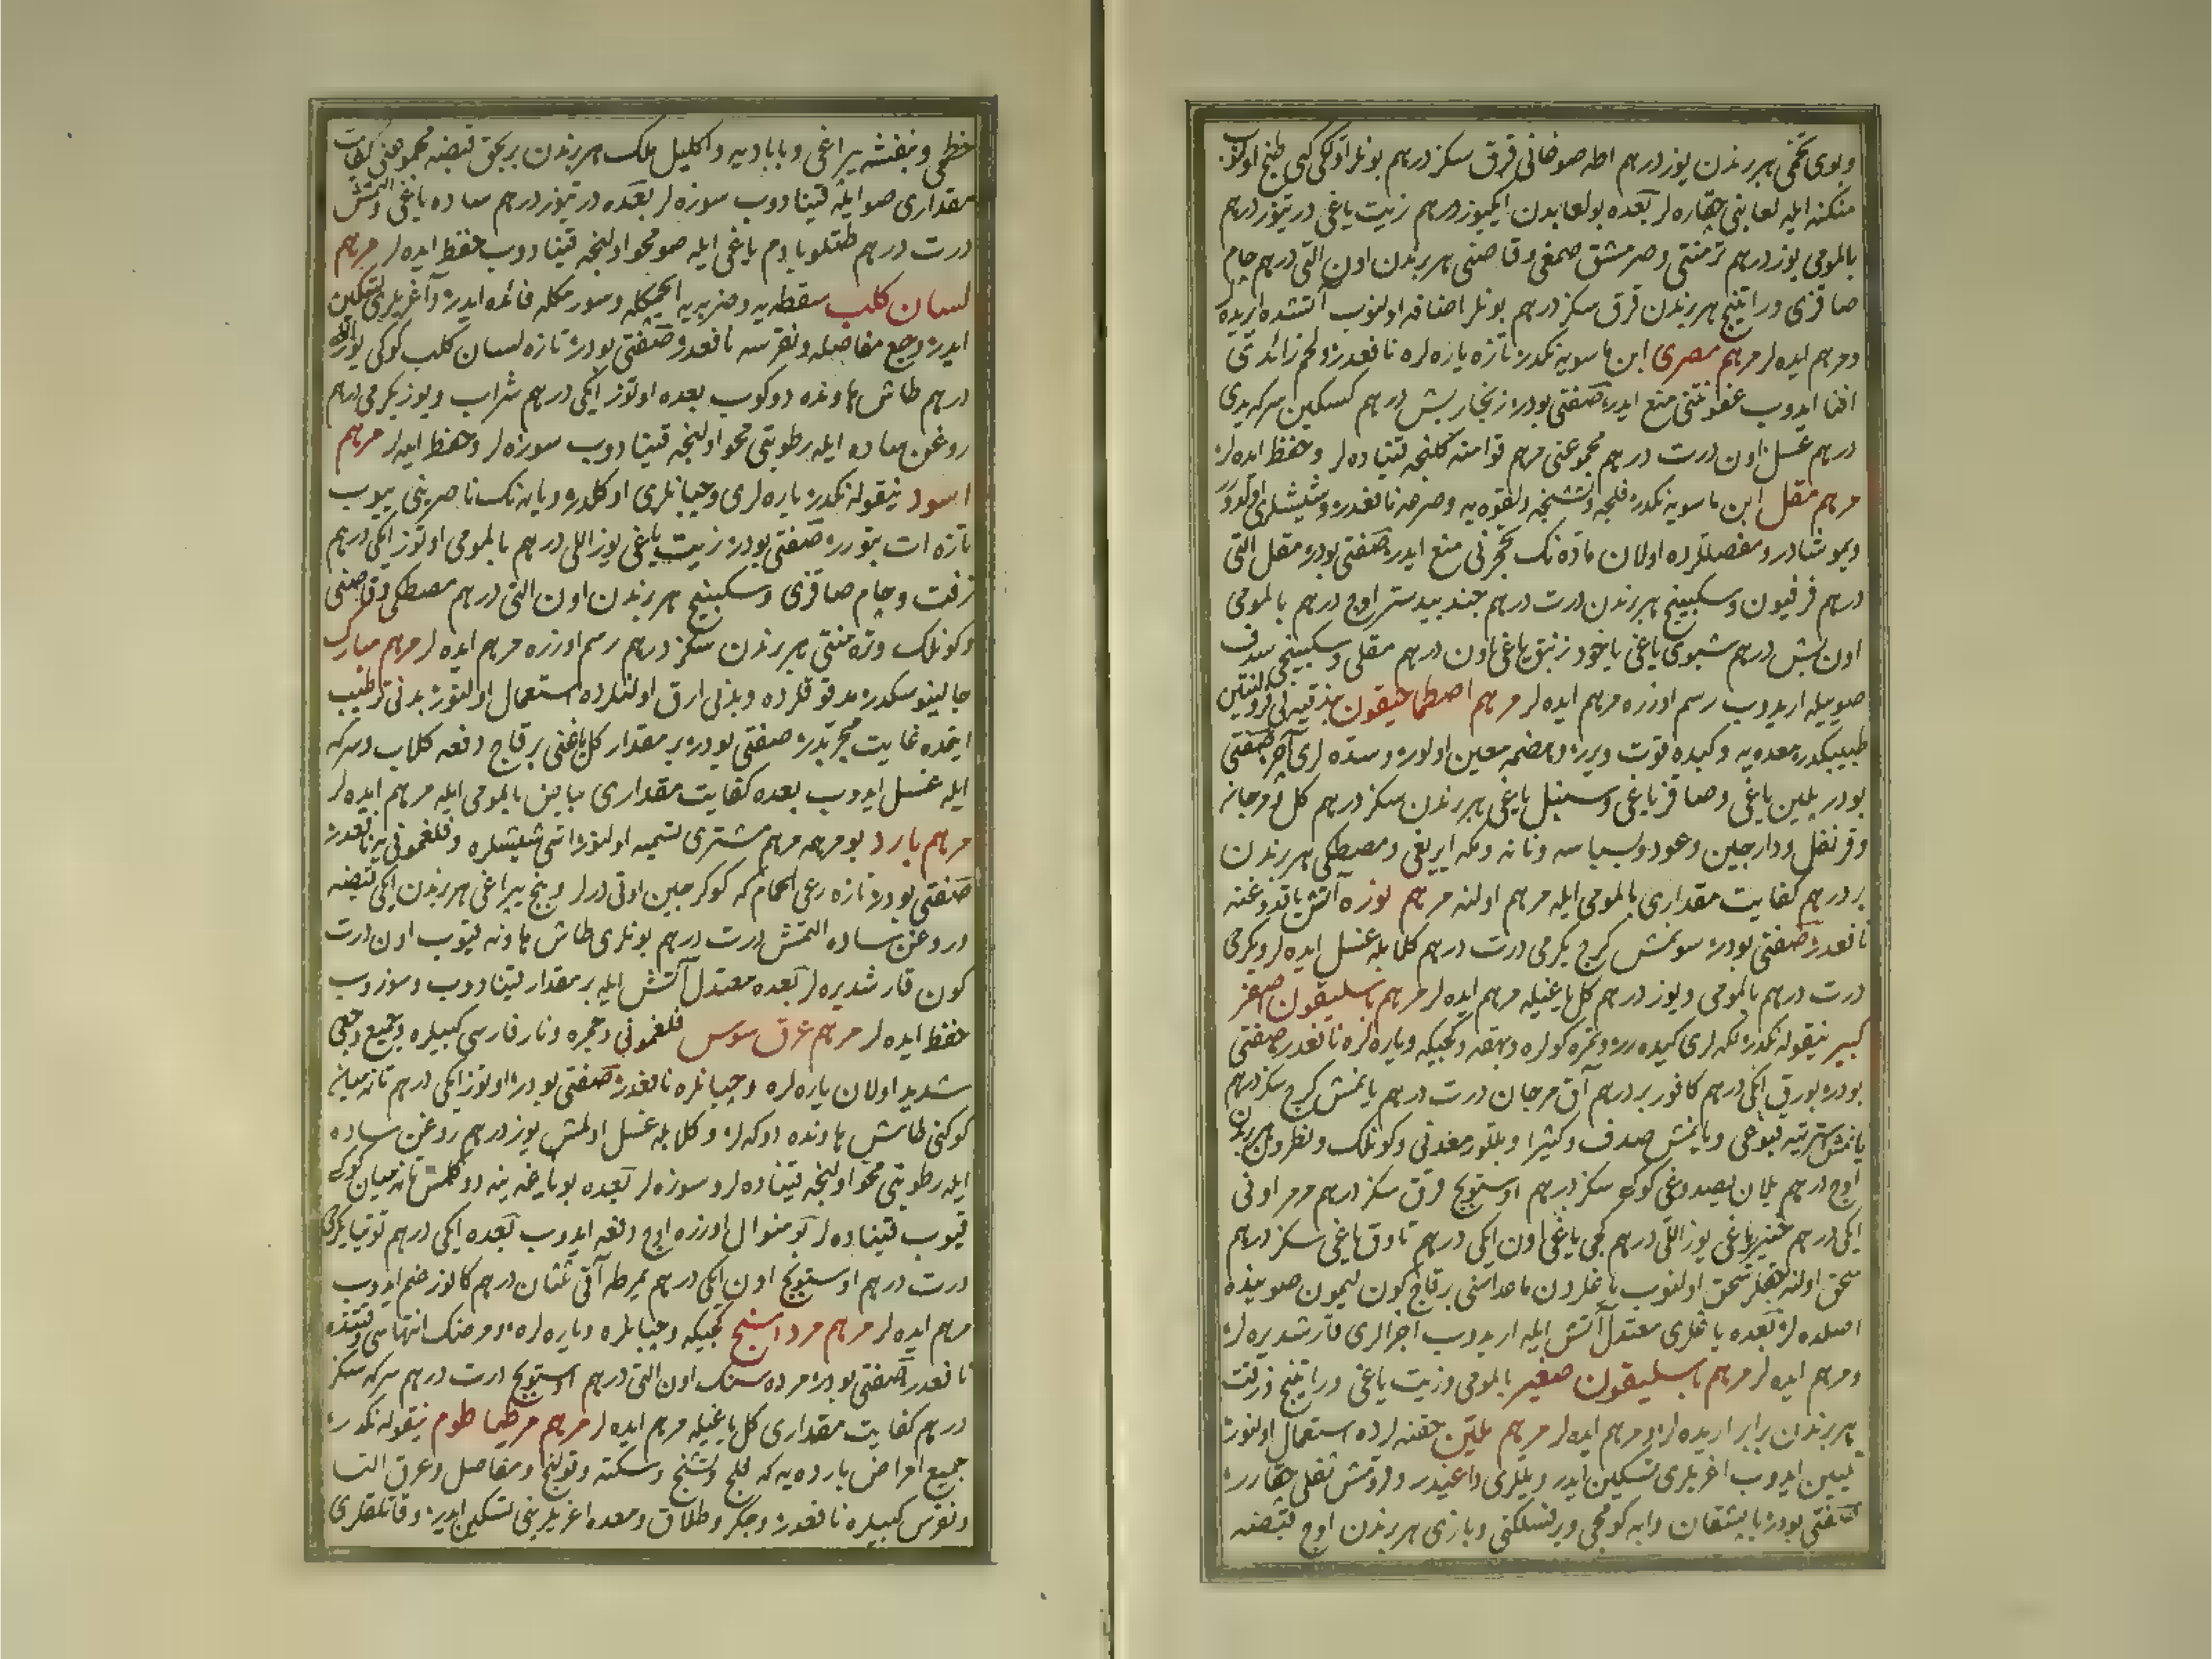 وبوی تخمی هر برندن یوز درهم اطه صوغانی قرق سکز درهم بونلر اولکی کبی طبخ اولنوب
منکنه ایله لعابنی چقاره لر بعده بو لعابدن ایکیوز درهم زیت یاغی درتیوز درهم
بالمومی یوز درهم ترمنتی وصرمشق صمغی وقاصنی هر برندن اون التی درهم چام
صاقزی وراتینج هر برندن قرق سکز درهم بونلر اضافه اولنوب آتشده اریده لر
ومرهم ایده لر مرهم مصری ابن ماسویه نکدر تازه یاره لره نافعدر ولحم زائدتی
افنا ایدوب عفونتنی منع ایدر صنعتی بودر زنجار بش درهم کسکین سرکه یدی
درهم عسل اون درت درهم مجموعنی مرهم قوامنه کلنجه قینیاده لر وحفظ ایده لر
مرهم مقل ابن ماسویه نکدر فلجه وتشنجه ولقوه یه وصرعه نافعدر وشیشلری
ویموشادر ومفصللرده اولان ماده نک تحجرنی منع ایدر صنعتی بودر مقل التی
درهم فرفیون وسکبینج هر برندن درت درهم جندبیدستر اوچ درهم بالمومی
اون بش درهم شبوی یاغی یاخود زنبق یاغی اون درهم مقلی وسکبینجی سدف
صوییله اریدوب رسم اوزره مرهم ایده لر مرهم اصطماخیقون
طبیبکدر معده یه وکبده قوت ویرر وهضمه معین اولور وسده لری آچر صنعتی
بودر پلین یاغی وصاقز یاغی وسنبل یاغی هر برندن سکز درهم کل
وقرنفل ودارچین وعود وبسباسه ونانه ومکه ایریغی ومصطکی هر برندن
بر درهم کفایت مقداری بالمومی ایله مرهم اولنه مرهم نوره آتش یاندوغنه
نافعدر صنعتی بودر سونمش کرج یکرمی درت درهم کلابله غسل ایده لر ویکرمی
درت درهم بالمومی ویوز درهم کل یاغیله مرهم ایده لر مرهم باسلیقون
کبیر نیقوله نکدر لکه لری کیده رر وتمره کولره وبهقه وکجیکه ویاره لره نافعدر صنعتی
بودر بورق ایکی درهم کافور بر درهم آق مرجان درت درهم یانمش کرج سکز درهم
یانمش وکثیرا وبللور معدنی وکونلک ونطرون هر برندن
اوچ درهم یلان یصدوغی کوکی سکز درهم اوستوبج قرق سکز درهم مرمر اونی
ایکی درهم خنزیر یاغی یوز اللی درهم کچی یاغی اون ایکی درهم تاوق یاغی سکز درهم
سحق اولنه جقلر سحق اولنوب یاغلردن ماعداسنی برقاچ کون لیمون صوینده
اصلده لر بعده یاغلری معتدل آتش ایله اریدوب اجزالری قارشدیره لر
ومرهم ایده لر مرهم باسلیقون صغیر بالمومی وزیت یاغی وراتینج وزفت
هر برندن برابر اریده لر ومرهم ایده لر مرهم ملین حقنه لرده استعمال اولنور
تلیین ایدوب اغریلری تسکین ایدر ویللری داغیدر وقورمش ثفلی چقارر
صنعتی بودر یاپشقان وابه کومجی ویرنسلکنی وبازی هر برندن اوچ قبضه
خطمی وبنفشه یپراغی وبابادیه واکلیل ملک هر برندن بر بچق قبضه مجموعنی کفایت
مقداری صو ایله قینادوب سوزه لر بعده درتیوز درهم ساده یاغی والتمش
درت درهم طتلو بادم یاغی ایله صو محو اولنجه قینادوب حفظ ایده لر مرهم
لسان کلب سقطه یه وضربه یه انجمکله وسورمکله فائده ایدر وآغریلری تسکین
ایدر وجع مفاصله ونقرسه نافعدر صنعتی بودر تازه لسان کلب کوکی
درهم طاش هاونده دوکوب بعده اوتوز ایکی درهم شراب ویوز یکرمی درهم
روغن ساده ایله رطوبتی محو اولنجه قینادوب سوزه لر وحفظ ایده لر مرهم
اسود نیقوله نکدر یاره لری وچبانلری اوکلدر ویاره نک ناصرینی ییوب
تازه ات بتورر صنعتی بودر زیت یاغی یوز اللی درهم بالمومی اوتوز ایکی درهم
زفت وچام صاقزی وسکبینج هر برندن اون التی درهم مصطکی وقاصنی
وکونلک وترمنتی هر برندن سکز درهم رسم اوزره مرهم ایده لر مرهم مبارک
جالینوسکدر مدقوقلرده وبدنی ارق اولنلرده استعمال اولنور بدنی ترطیب
ایتمده غایت مجربدر صنعتی بودر بر مقدار کل یاغنی برقاچ دفعه کلاب وسرکه
ایله غسل ایدوب بعده کفایت مقداری بیاض بالمومی ایله مرهم ایده لر
مرهم بارد بو مرهمه مرهم مشتری تسمیه اولنور اسی شیشلره وفلغمونی یه نافعدر
صنعتی بودر تازه رعی الحمام که کوکرجین اوتی درلر وبنج یپراغی هر برندن ایکی قبضه
وروغن ساده التمش درت درهم بونلری طاش هاونه قیوب اون درت
کون قارشدیره لر بعده معتدل آتش ایله بر مقدار قینادوب وسوزوب
حفظ ایده لر مرهم عرق سوس فلغمونی وجمره ونار فارسی کبیلره وجمیع وجعی
شدید اولان یاره لره وچبانلره نافعدر صنعتی بودر اوتوز ایکی درهم تازه میان
کوکنی طاش هاونده دوکه لر وکلابله غسل اولمش یوز درهم روغن ساده
ایله رطوبتی محو اولنجه قینیاده لر وسوزه لر بعده بو یاغه ینه دوکلمش تازه میان کوکی
قیوب قینیاده لر بو منوال اوزره اوچ دفعه ایدوب بعده ایکی درهم توتیا یکرمی
درت درهم اوستوبج اون ایکی درهم یمرطه آقی ثمنان درهم کافور ضم ایدوب
مرهم ایده لر مرهم مرداسنج کجیکه وچبانلره ویاره لره ومرضک انتهاسی وقتنده
نافعدر صنعتی بودر مرده سنک اون التی درهم اوستوبج درت درهم سرکه سکز
درهم کفایت مقداری کل یاغیله مرهم ایده لر مرهم مرطیاطوم نیقوله نکدر
جمیع امراض بارده یه که فلج وتشنج وسکته وقولنج ومفاصل وعرق النسا
ونقرس کبیلره نافعدر وجکر وطلاق ومعده اغریلرینی تسکین ایدر وقاتلقلری